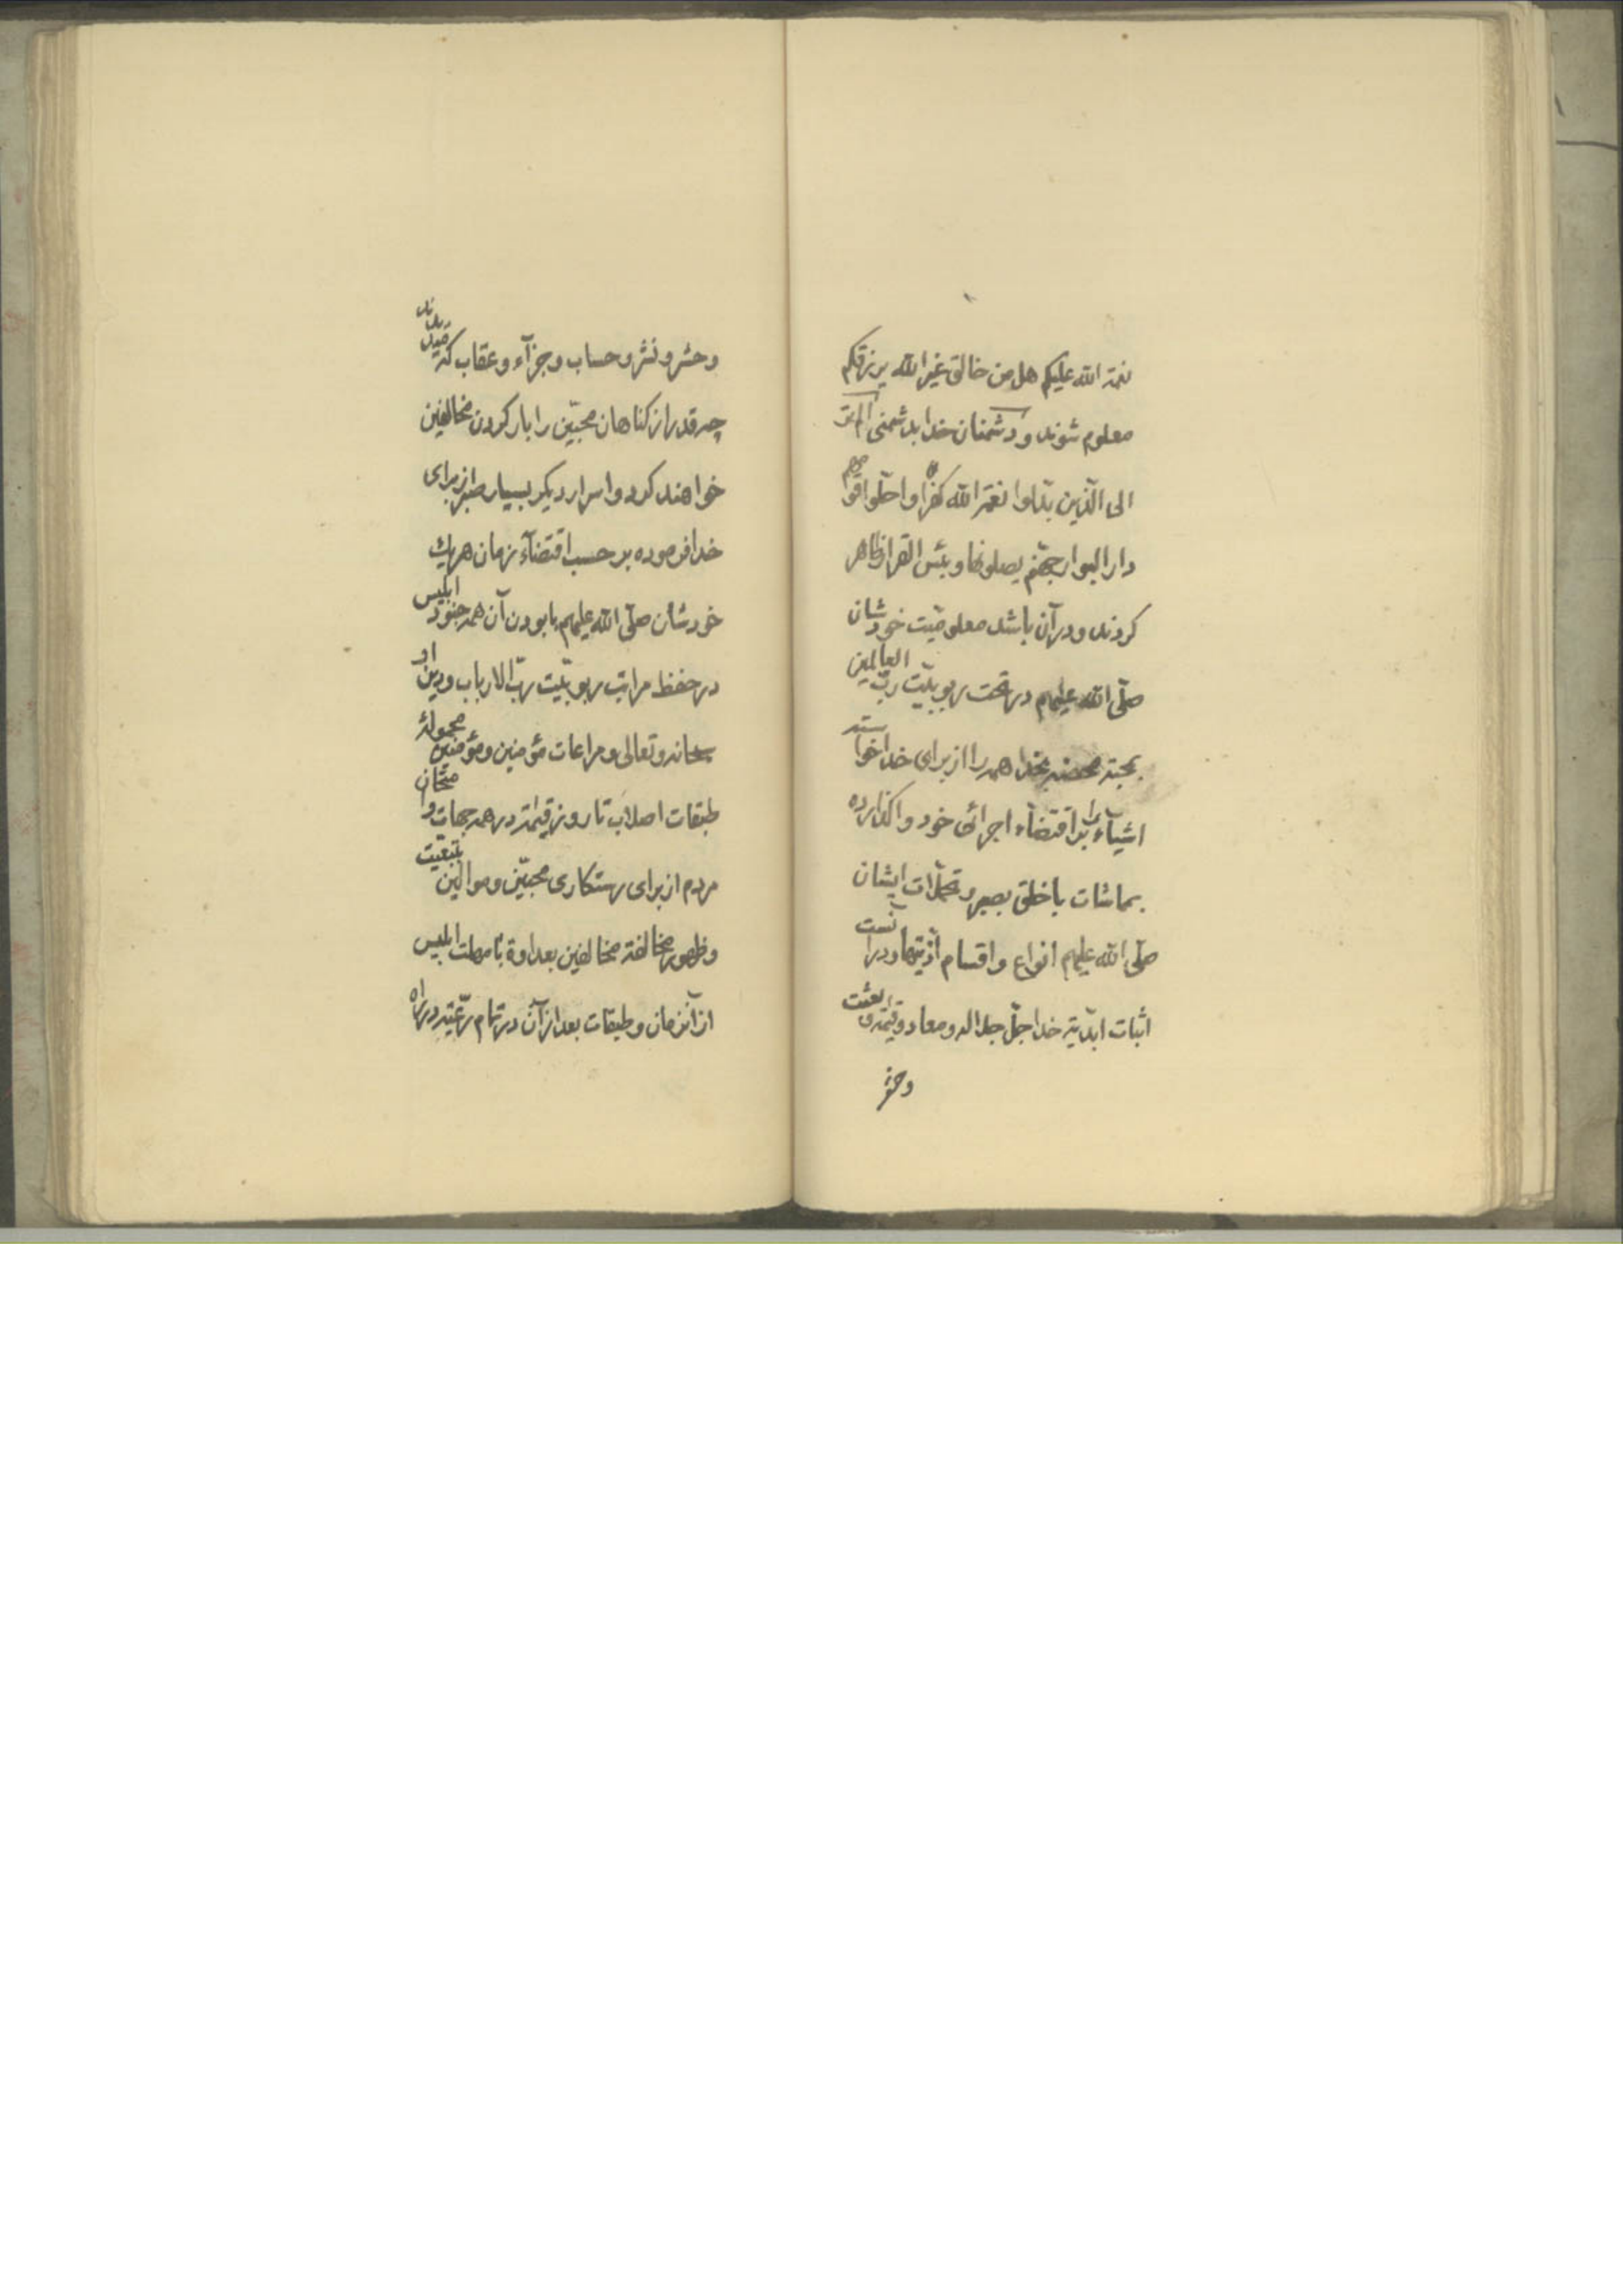 نعمة الله علیکم هل من خالق غیر الله یرزقکم
معلوم شوند و دشمنان خدا بدشمنی
الی الذین بدّلوا نعمة الله کفرا و احلّوا قومهم
دار البوار جهنّم یصلونها و بئس القرار ظاهر
کردند و در آن باشد معلومیّت خودشان
صلّی الله علیهم در تحت ربوبیّت ربّ العالمین
بمحبّة محضه بخدا همه را از برای خدا خواسته
اشیآء را بر اقتضآء اجرائی خود واکذارده
بماشات با خلق بصبر و تحمّلات ایشان
صلّی الله علیهم انواع و اقسام اذیّتها و در آنست
اثبات ابدیّة خدا جلّ جلاله و معاد و قیمة و بعثت
وحشر
وحشر و نشر و حساب و جزآء و عقاب که
چه قدر از کناهان محبّین را بار کردن مخالفین
خواهند کرد و اسرار دیکر بسیار صبر از برای
خدا فرموده بر حسب اقتضآء زمان هریك
خودشان صلّی الله علیهم با بودن آن همه جنود ابلیس
در حفظ مراتب ربوبیّت ربّ الارباب و دین او
سبحانه و تعالی و مراعات مؤمنین و مؤمنین
طبقات اصلاب تا روز قیمة در همه جهات و امتحان
مردم از برای رستکاری محبّین و موالین بتبعیّت
و ظهور مخالفة مخالفین بعداوة با مهلت ابلیس
از آنزمان و طبقات بعد از آن در تمام رعیّته در راه